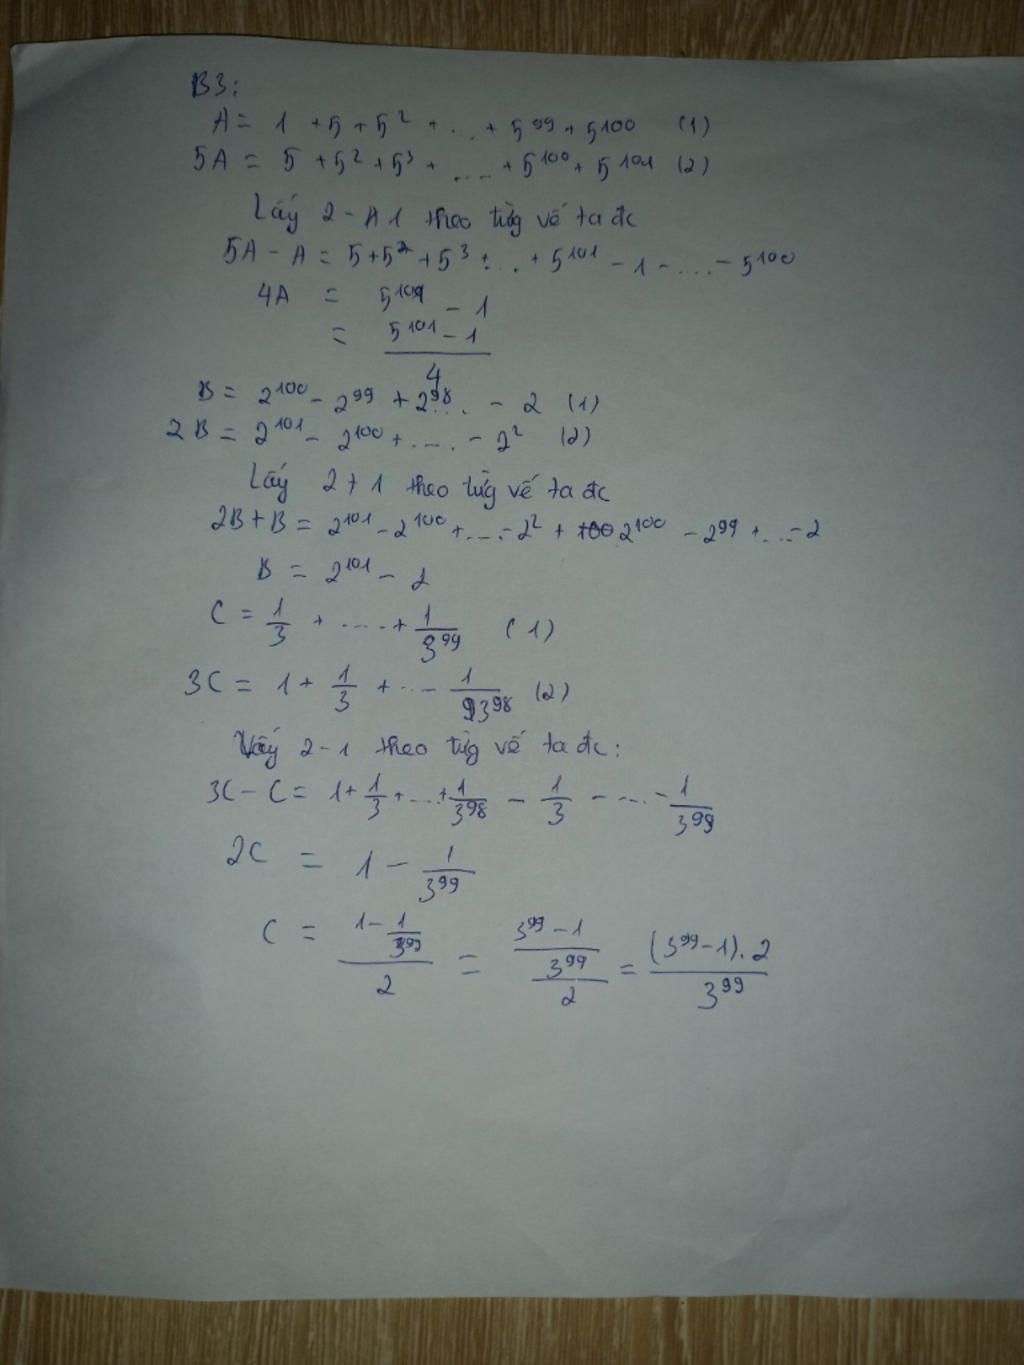 B3:
A = 1 + 5 + 5² + ... + 5⁹⁹ + 5¹⁰⁰ (1)
5A = 5 + 5² + 5³ + ..... + 5¹⁰⁰ + 5¹⁰¹ (2)
Lấy 2 - A1 theo từg vế ta đc
5A - A = 5 + 5² + 5³ + ... + 5¹⁰¹ - 1 - ..... - 5¹⁰⁰
4A = 5¹⁰¹ - 1
= (5¹⁰¹ - 1)/4
B = 2¹⁰⁰ - 2⁹⁹ + 2⁹⁸... - 2 (1)
2B = 2¹⁰¹ - 2¹⁰⁰ + ..... - 2² (2)
Lấy 2 + 1 theo từg vế ta đc
2B + B = 2¹⁰¹ - 2¹⁰⁰ + ..... - 2² + 2¹⁰⁰ - 2⁹⁹ + ... - 2
B = 2¹⁰¹ - 2
C = 1/3 + ..... + 1/3⁹⁹ (1)
3C = 1 + 1/3 + ... - 1/3⁹⁸ (2)
Lấy 2 - 1 theo từg vế ta đc:
3C - C = 1 + 1/3 + ... + 1/3⁹⁸ - 1/3 - .... - 1/3⁹⁹
2C = 1 - 1/3⁹⁹
C = (1 - 1/3⁹⁹)/2 = ((3⁹⁹ - 1)/3⁹⁹)/2 = ((3⁹⁹ - 1).2)/3⁹⁹